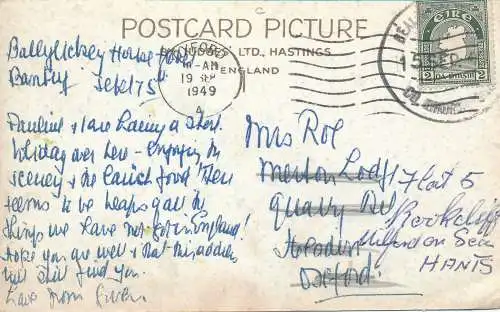 POSTCARD PICTURE
BY JUDGES LTD., HASTINGS
ENGLAND
Ballylickey House Hotel
Bantry Sept 15th
OXFORD
AM
19 SEP
1949
15 SEP
CO.
EIRE
2
Pauline & I are having a short
holiday over here - Enjoying the
scenery & the lavish food! There
seems to be heaps of all the
things we have not got in England!
Hope you are well & that this address
will still find you.
Love from Gwen.
Mrs Roe
Merton Lodge
Quarry Rd
Headington
Oxford
Flat 5
Rookcliff
Milford on Sea
HANTS